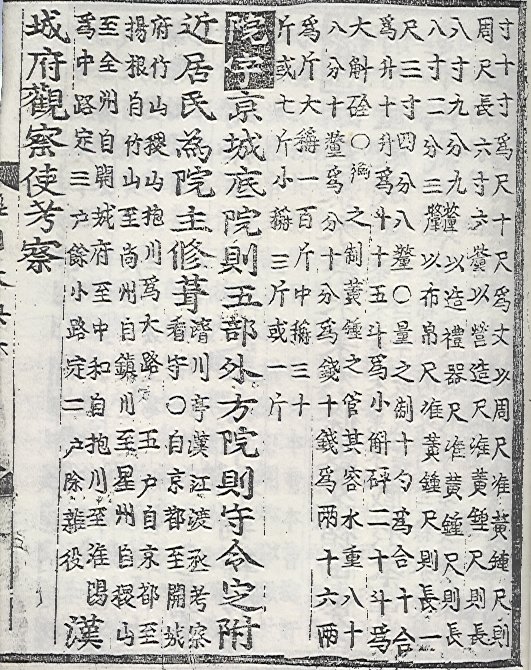 寸十寸爲尺十尺爲丈以周尺准黃鍾尺則
周尺長六寸六釐以營造尺准黃鍾尺則長
八寸九分九釐以造禮器尺准黃鍾尺則長
八寸二分三釐以布帛尺准黃鍾尺則長一
尺三寸四分八釐○量之制十勺爲合十合
爲升十升爲斗十五斗爲小斛二十斗爲
大斛○衡之制黃鍾之管其容水重八十
八分十釐爲分十分爲錢十錢爲兩十六兩
爲斤大稱一百斤中稱三十
斤或七斤小稱三斤或一斤
院宇京城底院則五部外方院則守令定附
近居民爲院主修葺
濟川亭漢江渡丞考察
看守○自京都至開城
府竹山稷山抱川爲大路五戶自京都至
揚根自竹山至尙州自鎭川至星州自稷山
至全州自開城府至中和自抱川至淮陽
爲中路定三戶餘小路定二戶除雜役漢
城府觀察使考察